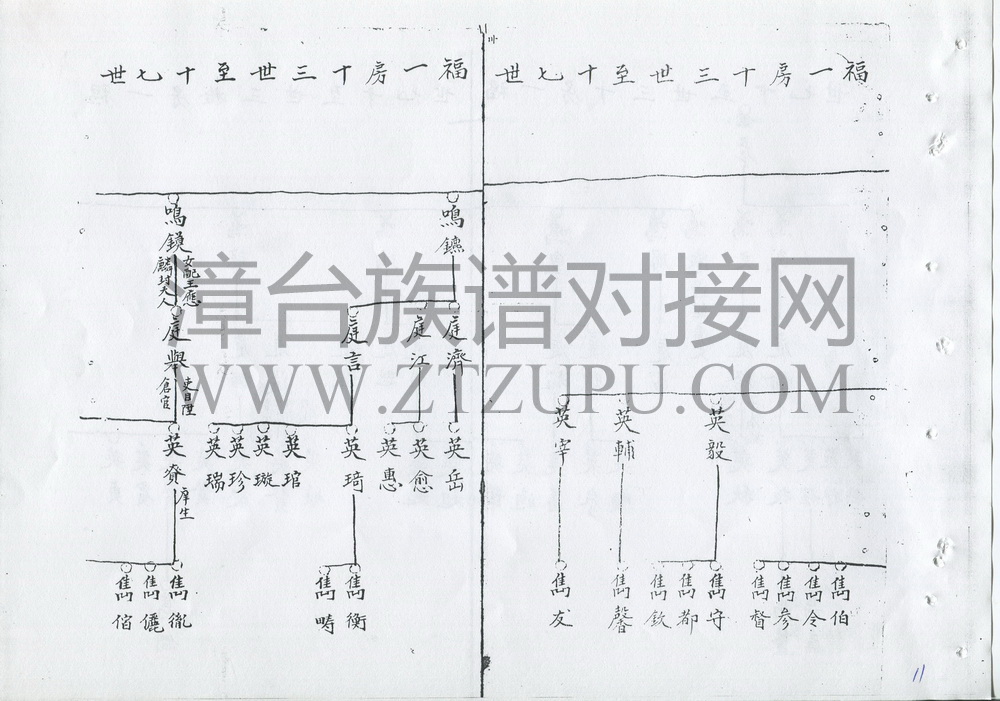 福一房十三世至十七世
英毅
英輔
英宰
雋伯
雋令
雋參
雋督
雋守
雋都
雋欽
雋馨
雋友
福一房十三世至十七世
鳴鑣
鳴鎮
女配王應
麟封夫人
庭濟
庭江
庭言
庭舉
吏目陞
倉官
英岳
英愈
英惠
英琦
英琯
英璇
英珍
英瑞
英賚
庠生
雋衡
雋疇
雋胤
雋儷
雋倌
章台族谱对接网
WWW.ZTZUPU.COM
11